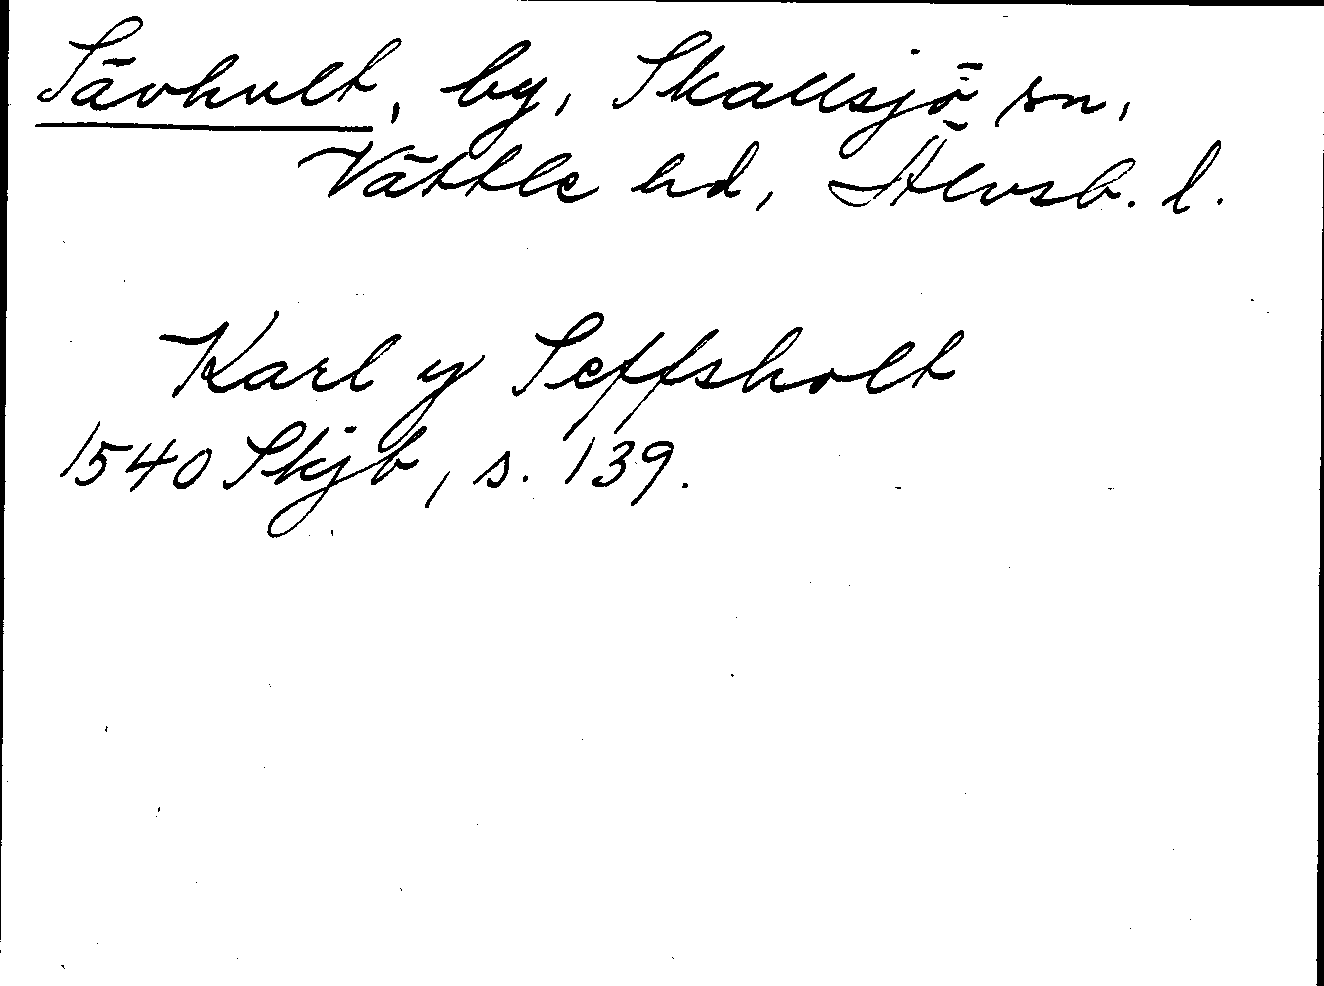 Sävhult, by, Skallsjö sn,
Vättle hd, Älvsb. l.
Karl y Seffsholt
1540 Skjb, s. 139.